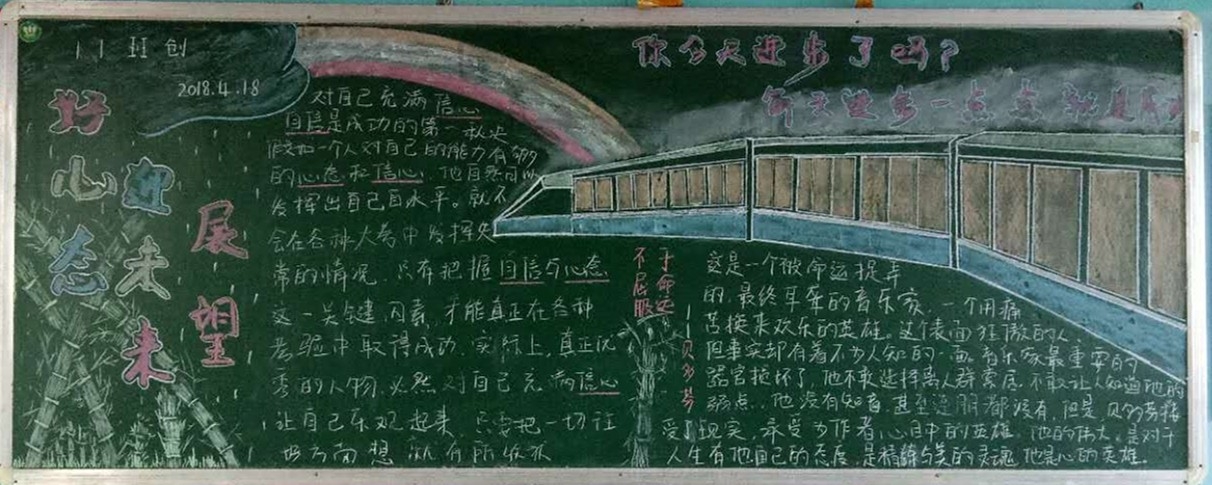 11班创
2018.4.18
好心态
迎未来
展望
你今天进来了吗？
每天进步一点点就是成
对自己充满信心
自信是成功的第一秋史
假如一个人对自己的能力有够的
的心态和信心，他自然
发挥出自己目水平。就不
会在各种大考中发挥失
常的情况，只有把握自信与心态
这一关键因素，才能真正在各种
考验中取得成功，实际上，真正优
秀的人物，必然对自己充满信心
让自己乐观起来，只要把一切往
好方面想 就有所收获
不屈服
于命运
——贝多芬
这是一个被命运捉弄
的，最终耳聋的音乐家，一个用痛
苦换来欢乐的英雄。这个表面狂傲的人
但事实却有着不少人知的一面。音乐家最重要的
器官损坏了，他不敢选择离人群索居，不敢让人知道他的
弱点，他没有知音 甚至连朋都没有，但是，贝多芬接
受了现实，承受为作者心目中的英雄，他的伟大，是对于
人生有他自己的态度，是精神与美的灵魂 他是心的英雄。